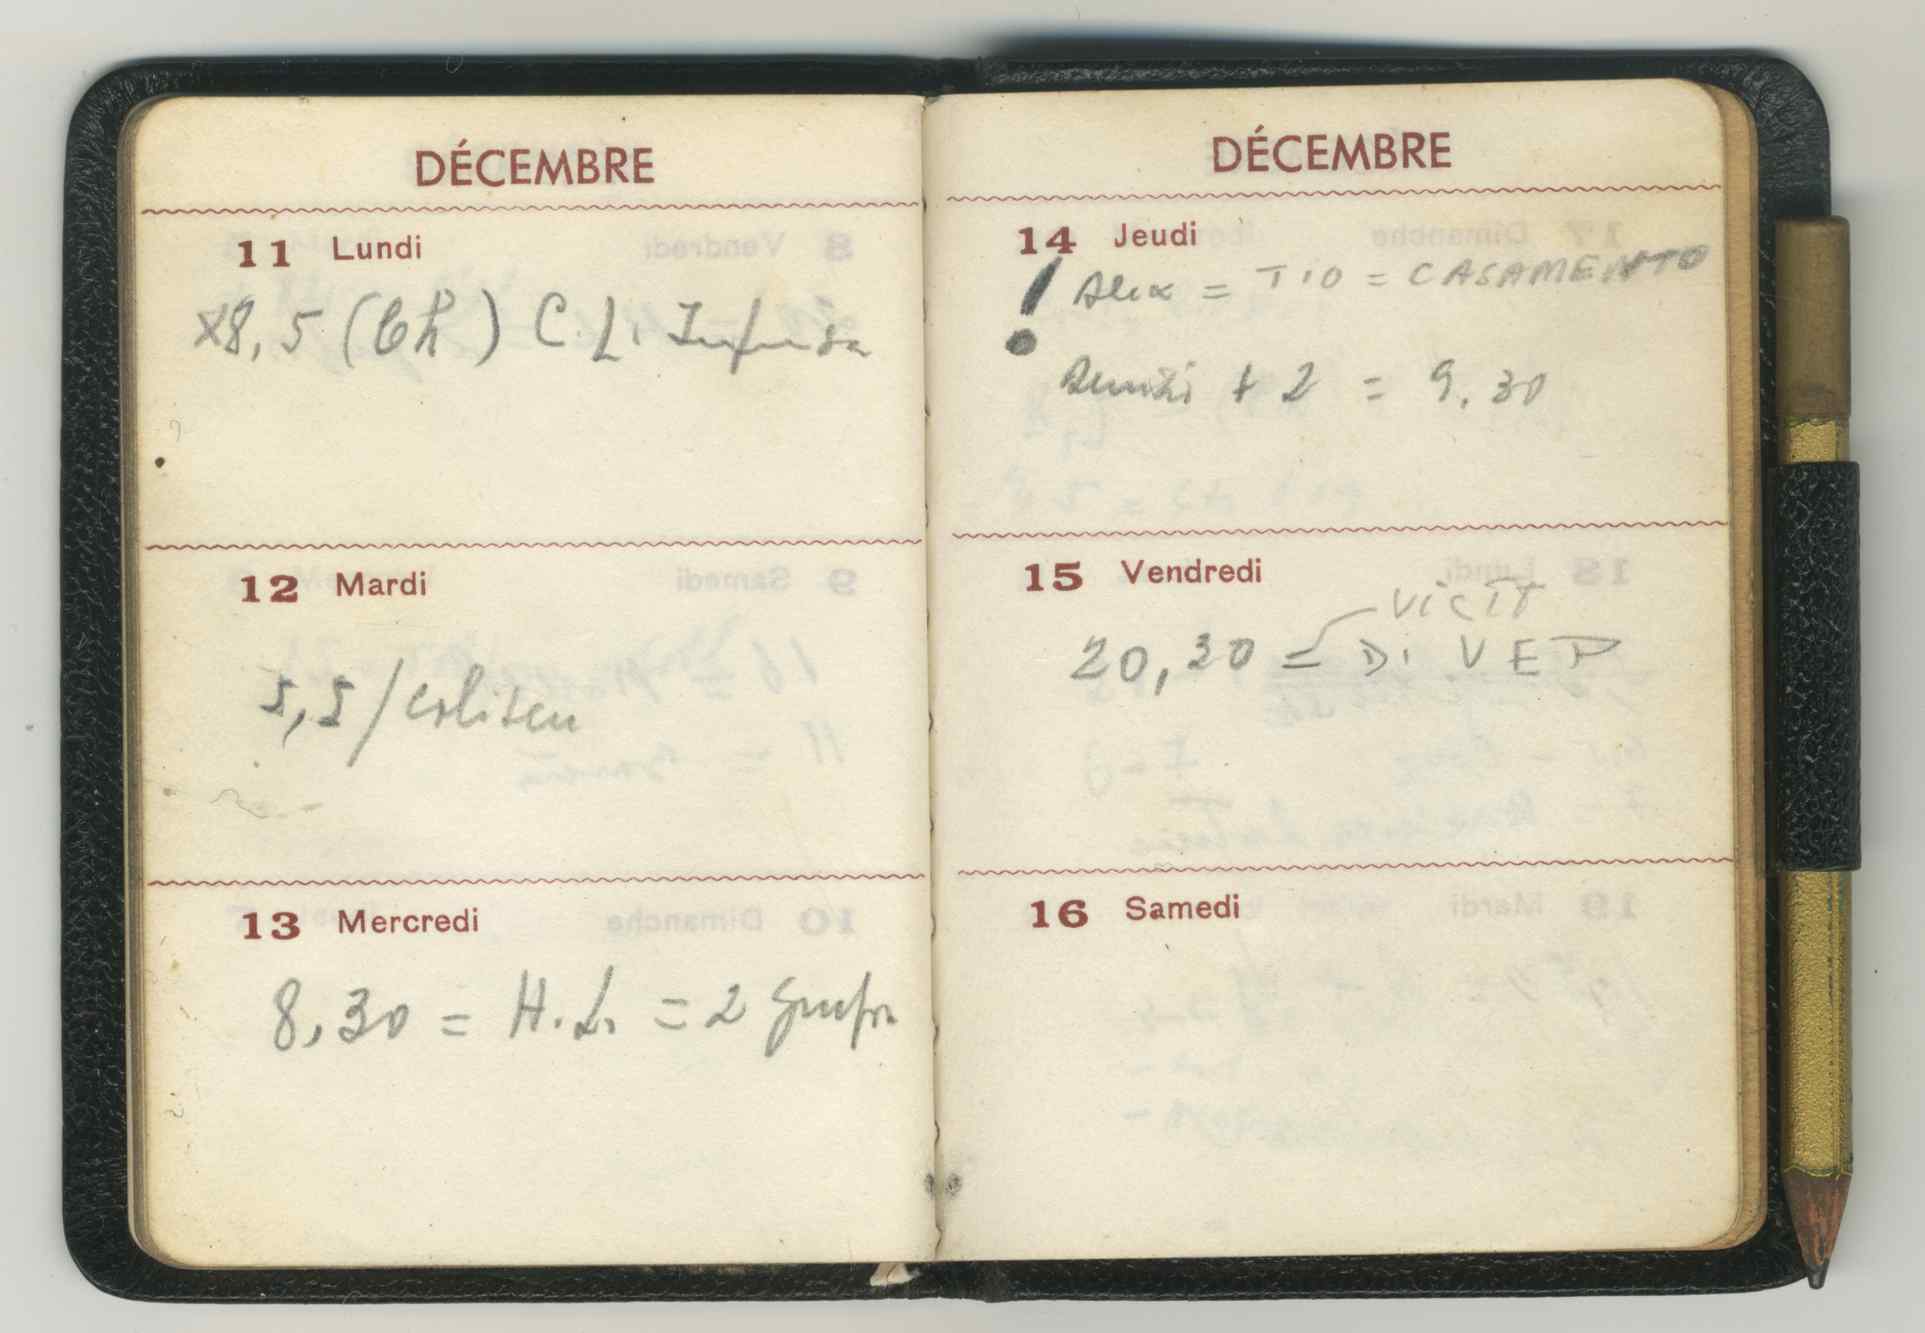 DÉCEMBRE
11 Lundi
x8,5 (Ch) C. L.
12 Mardi
5,5 / Coliseu
13 Mercredi
8,30 = H. L. = 2
DÉCEMBRE
14 Jeudi
! Alix = TIO = CASAMENTO
+ 2 = 9.30
15 Vendredi
VICIT
20,30 = D. VEP
16 Samedi